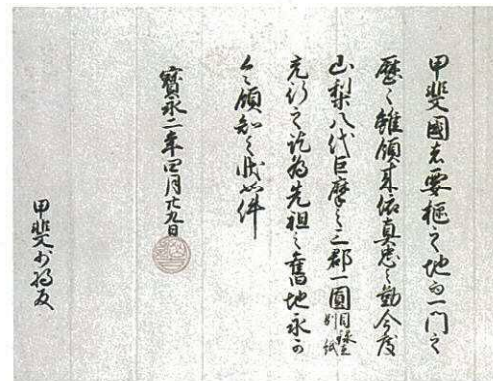 甲斐國者要樞之地而一門之
歴々雖領来依真忠之勤今度
山梨八代巨摩之三郡一圓目録在別紙
充行之訖為先祖之舊地永可
令領知之状如件
寳永二年四月廿九日
甲斐少将殿